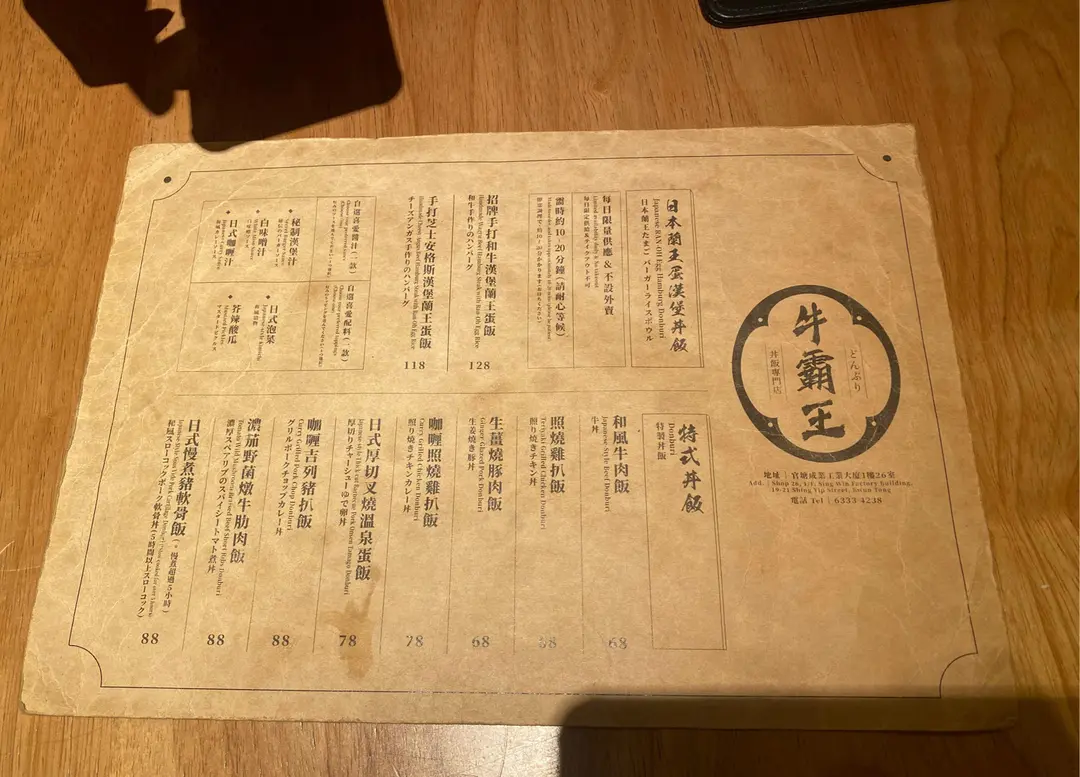 牛霸王
どんぶり
丼飯專門店
地址 | 官塘成業工業大廈1樓26室
Add. | Shop 26, 1/F, Sing Win Factory Building,
19-21 Shing Yip Street, Kwun Tong
電話 Tel | 6333 4238
日本蘭王蛋漢堡丼飯
Japanese RAN-OH Egg Hamburg Donburi
日本蘭王たまごバーガーライスボウル
每日限量供應 & 不設外賣
需時約10-20分鐘(請耐心等候)
招牌手打和牛漢堡蘭王蛋飯
Handmade Wagyu Beef Hamburg Steak with Ran-Oh Egg Rice
和牛手作りのハンバーグ
128
手打芝士安格斯漢堡蘭王蛋飯
チーズアンガス手作りのハンバーグ
118
自選喜愛醬汁(一款)
秘制漢堡汁
白味噌汁
日式咖喱汁
自選喜愛配料(一款)
日式泡菜
芥辣酸瓜
特式丼飯
Donburi
特製丼飯
和風牛肉飯
Japanese Style Beef Donburi
牛丼
68
照燒雞扒飯
Teriyaki Grilled Chicken Donburi
照り焼きチキン丼
68
生薑燒豚肉飯
Ginger Glazed Pork Donburi
生姜焼き豚丼
68
咖喱照燒雞扒飯
Curry Grilled Chicken Donburi
照り焼きチキンカレー丼
78
日式厚切叉燒溫泉蛋飯
Japanese style Thick-cut Barbecue Pork Onsen Tamago Donburi
厚切りチャーシューゆで卵丼
78
咖喱吉列豬扒飯
Curry Grilled Pork Chop Donburi
グリルポークチョップカレー丼
88
濃茄野菌燉牛肋肉飯
濃厚スペアリブのスパイシートマト煮丼
88
日式慢煮豬軟骨飯(慢煮超過5小時)
和風スローコックポーク軟骨丼(5時間以上スローコック)
88